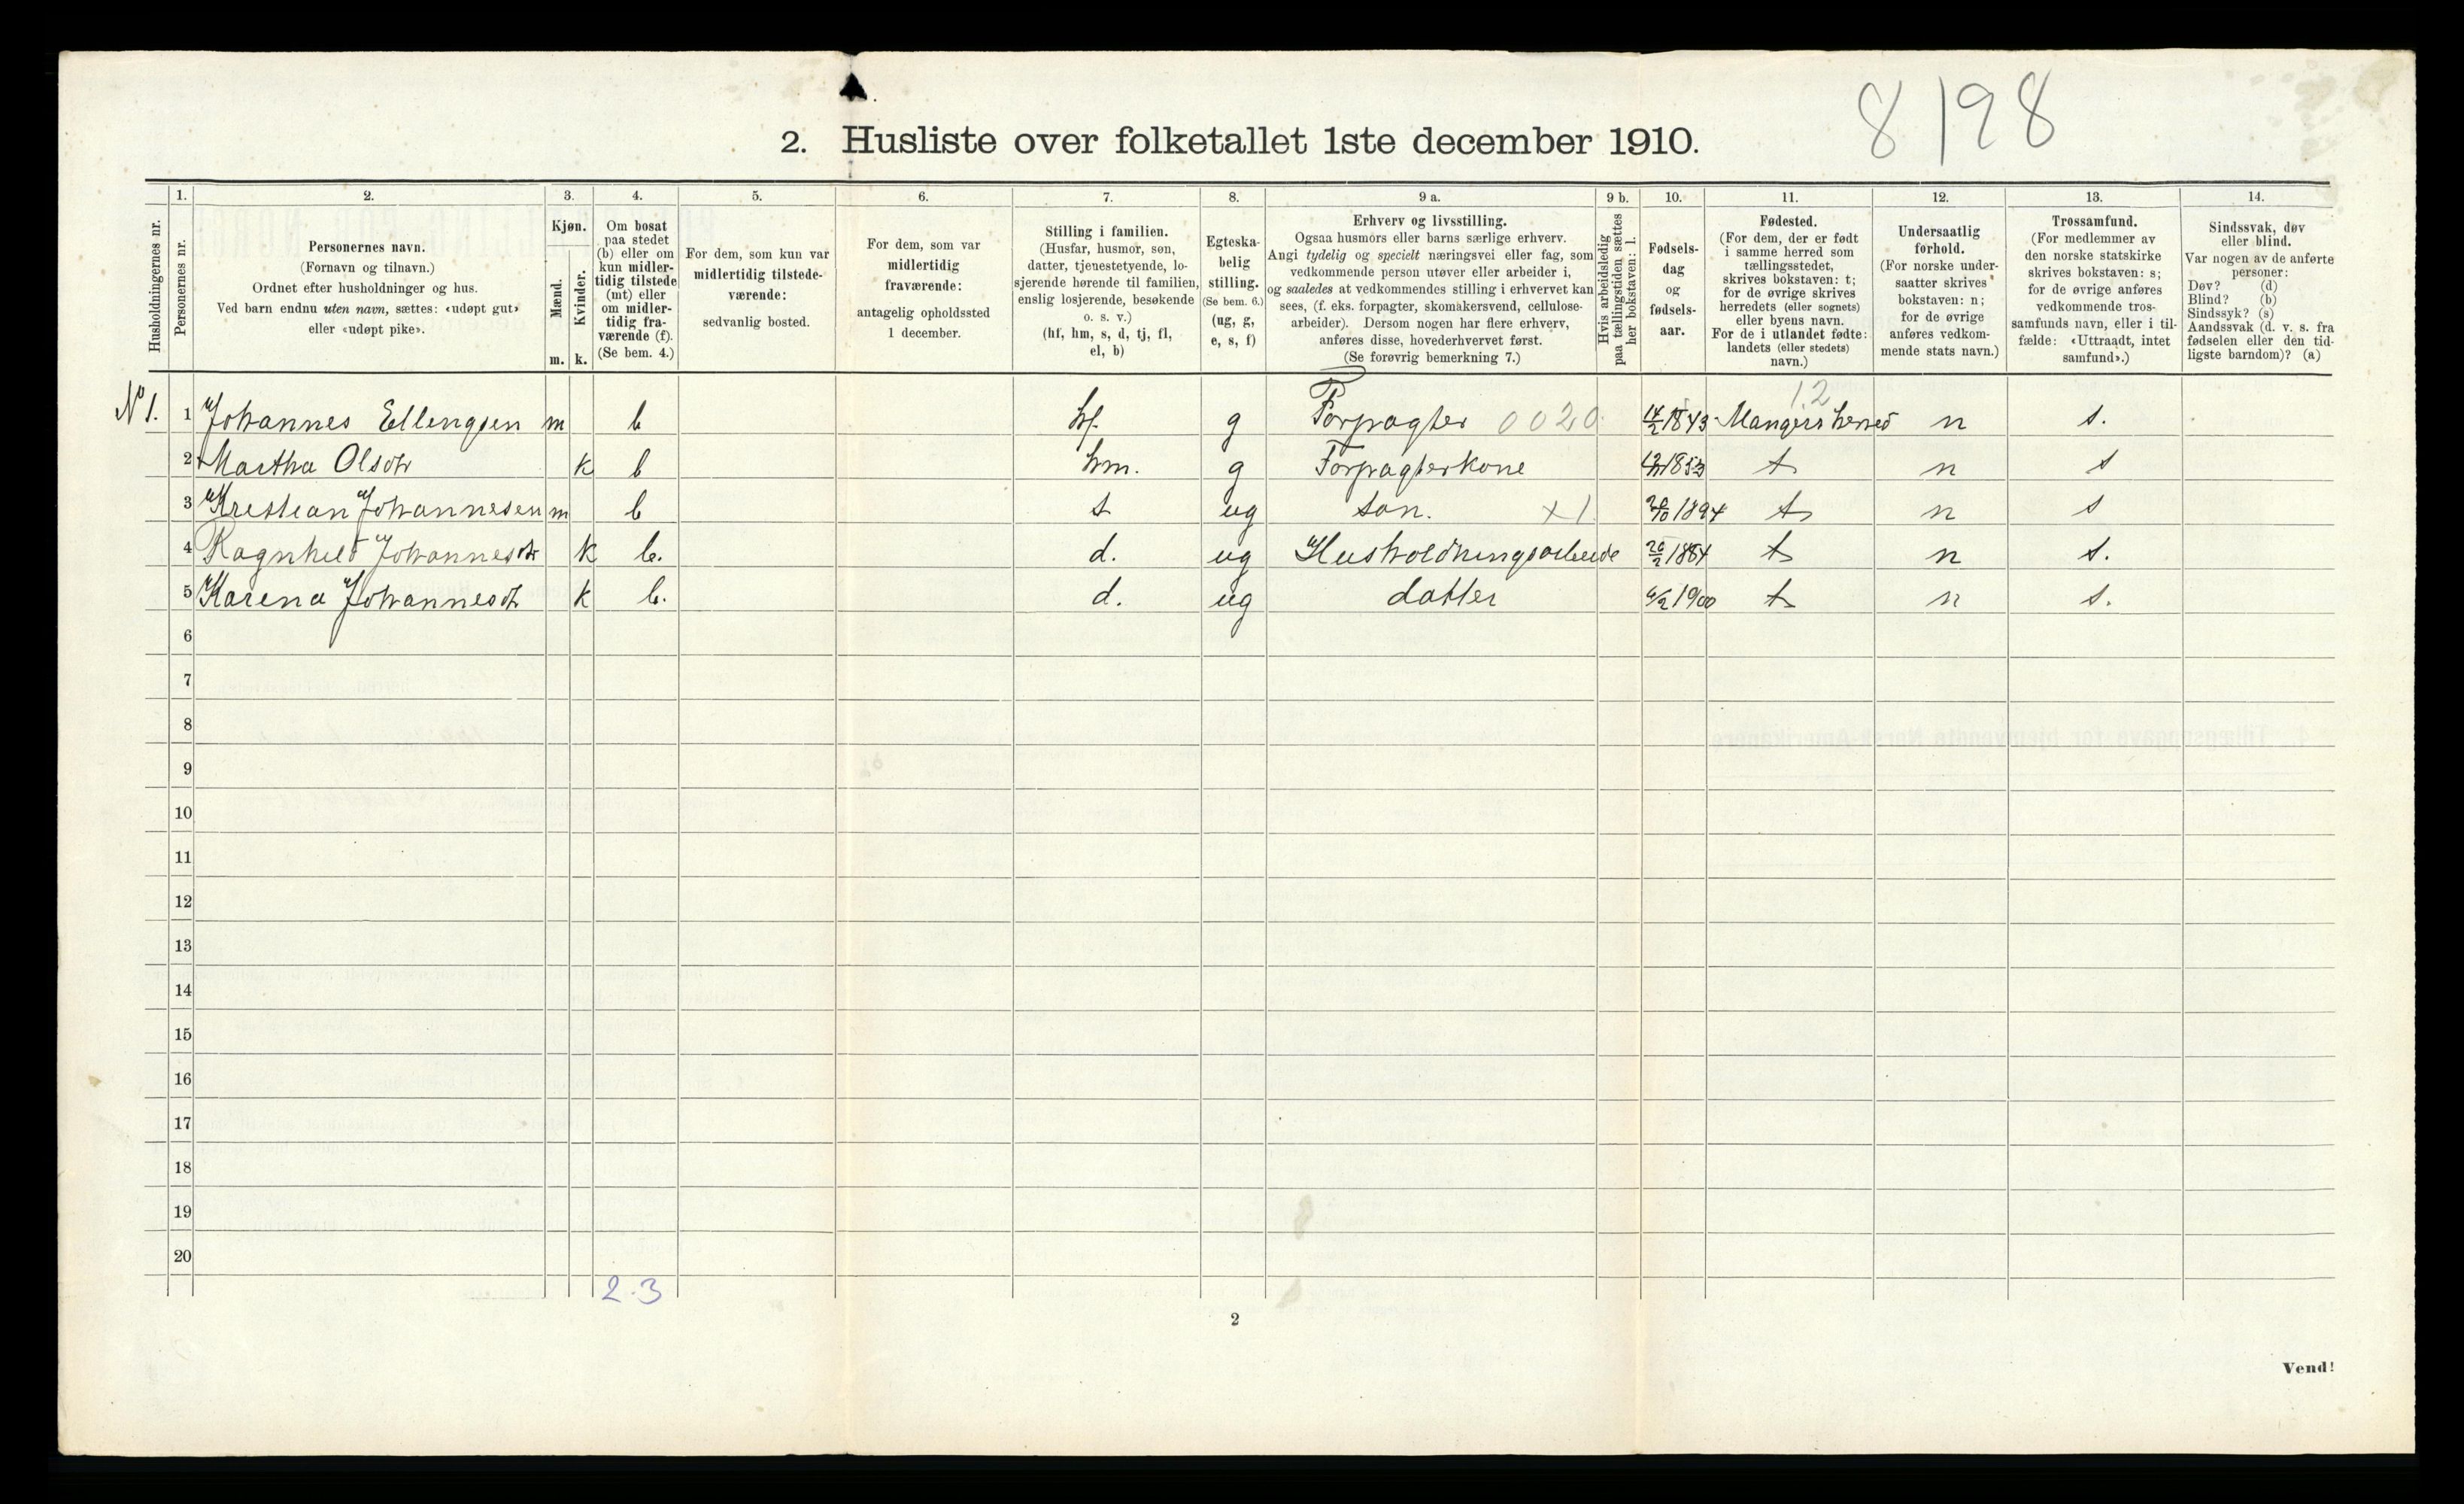 8198
2. Husliste over folketallet 1ste december 1910.
1. 2. 3. 4. 5. 6. 7. 8. 9 a. 9 b. 10. 11. 12. 13. 14.
Husholdningernes nr.
Personernes nr.
Personernes navn.
(Fornavn og tilnavn.)
Ordnet efter husholdninger og hus.
Ved barn endnu uten navn, sættes: «udøpt gut»
eller «udøpt pike».
Kjøn.
Mænd.
m.
Kvinder.
k.
Om bosat
paa stedet
(b) eller om
kun midler-
tidig tilstede
(mt) eller
om midler-
tidig fra-
værende (f).
(Se bem. 4.)
For dem, som kun var
midlertidig tilstede-
værende:
sedvanlig bosted.
For dem, som var
midlertidig
fraværende:
antagelig opholdssted
1 december.
Stilling i familien.
(Husfar, husmor, søn,
datter, tjenestetyende, lo-
sjerende hørende til familien,
enslig losjerende, besøkende
o. s. v.)
(hf, hm, s, d, tj, fl,
el, b)
Egteska-
belig
stilling.
(Se bem. 6.)
(ug, g,
e, s, f)
Erhverv og livsstilling.
Ogsaa husmors eller barns særlige erhverv.
Angi tydelig og specielt næringsvei eller fag, som
vedkommende person utøver eller arbeider i,
og saaledes at vedkommendes stilling i erhvervet kan
sees, (f. eks. forpagter, skomakersvend, cellulose-
arbeider). Dersom nogen har flere erhverv,
anføres disse, hovederhvervet først.
(Se forøvrig bemerkning 7.)
Hvis arbeidsledig
paa tællingstiden sættes
her bokstaven: l.
Fødsels-
dag
og
fødsels-
aar.
Fødested.
(For dem, der er født
i samme herred som
tællingsstedet,
skrives bokstaven: t;
for de øvrige skrives
herredets (eller sognets)
eller byens navn.
For de i utlandet fødte:
landets (eller stedets)
navn.)
Undersaatlig
forhold.
(For norske under-
saatter skrives
bokstaven: n;
for de øvrige
anføres vedkom-
mende stats navn.)
Trossamfund.
(For medlemmer av
den norske statskirke
skrives bokstaven: s;
for de øvrige anføres
vedkommende tros-
samfunds navn, eller i til-
fælde: «Uttraadt, intet
samfund».)
Sindssvak, døv
eller blind.
Var nogen av de anførte
personer:
Døv? (d)
Blind? (b)
Sindssyk? (s)
Aandssvak (d. v. s. fra
fødselen eller den tid-
ligste barndom)? (a)
12
No 1. 1 Johannes Ellengsen m b hf. g Forpagter 0020 14/2 1843 Mangers herred n s.
2 Martha Olsdtr k b hm. g Forpagterkone 1853 t n s
3 Kristian Johannesen m b s ug søn. x1 1894 t n s
4 Ragnhild Johannesdtr k b. d. ug Husholdningsarbeide 20/2 1884 t n s.
5 Karena Johannesdt k b. d. ug datter 6/2 1900 t n s.
6
7
8
9
10
11
12
13
14
15
16
17
18
19
20
2.3
2
Vend!